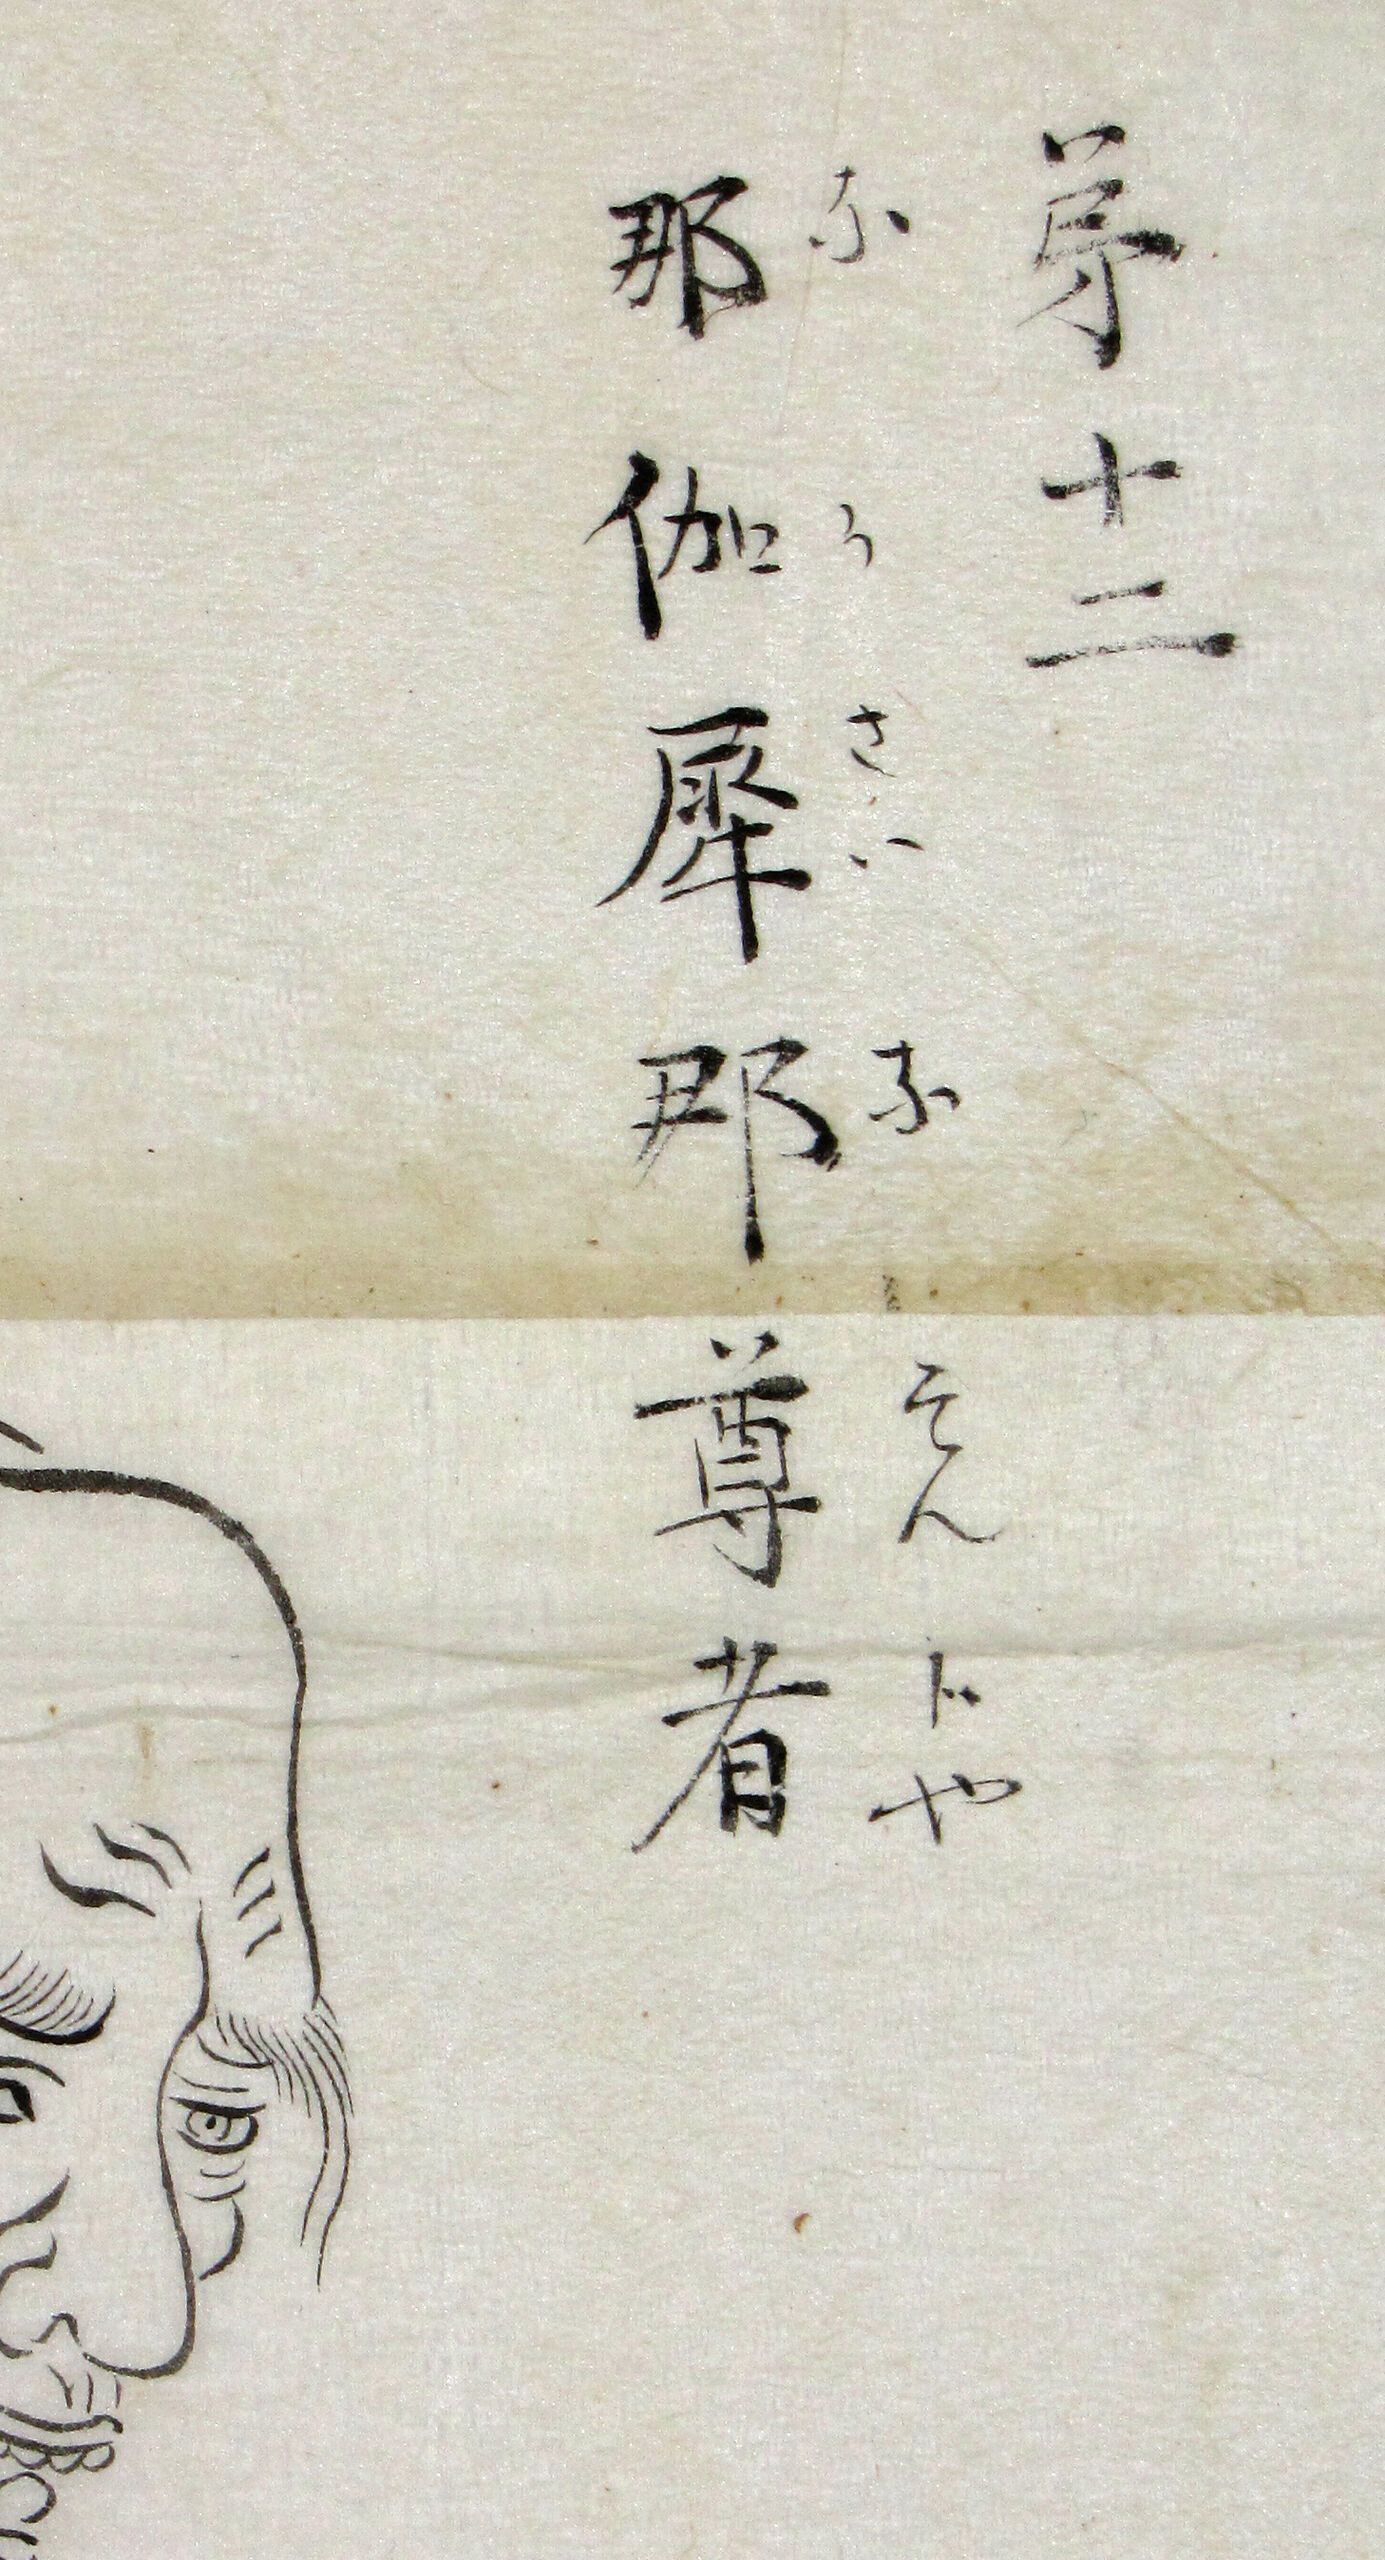 第十二
那伽犀那尊者
なうさいなそんじや